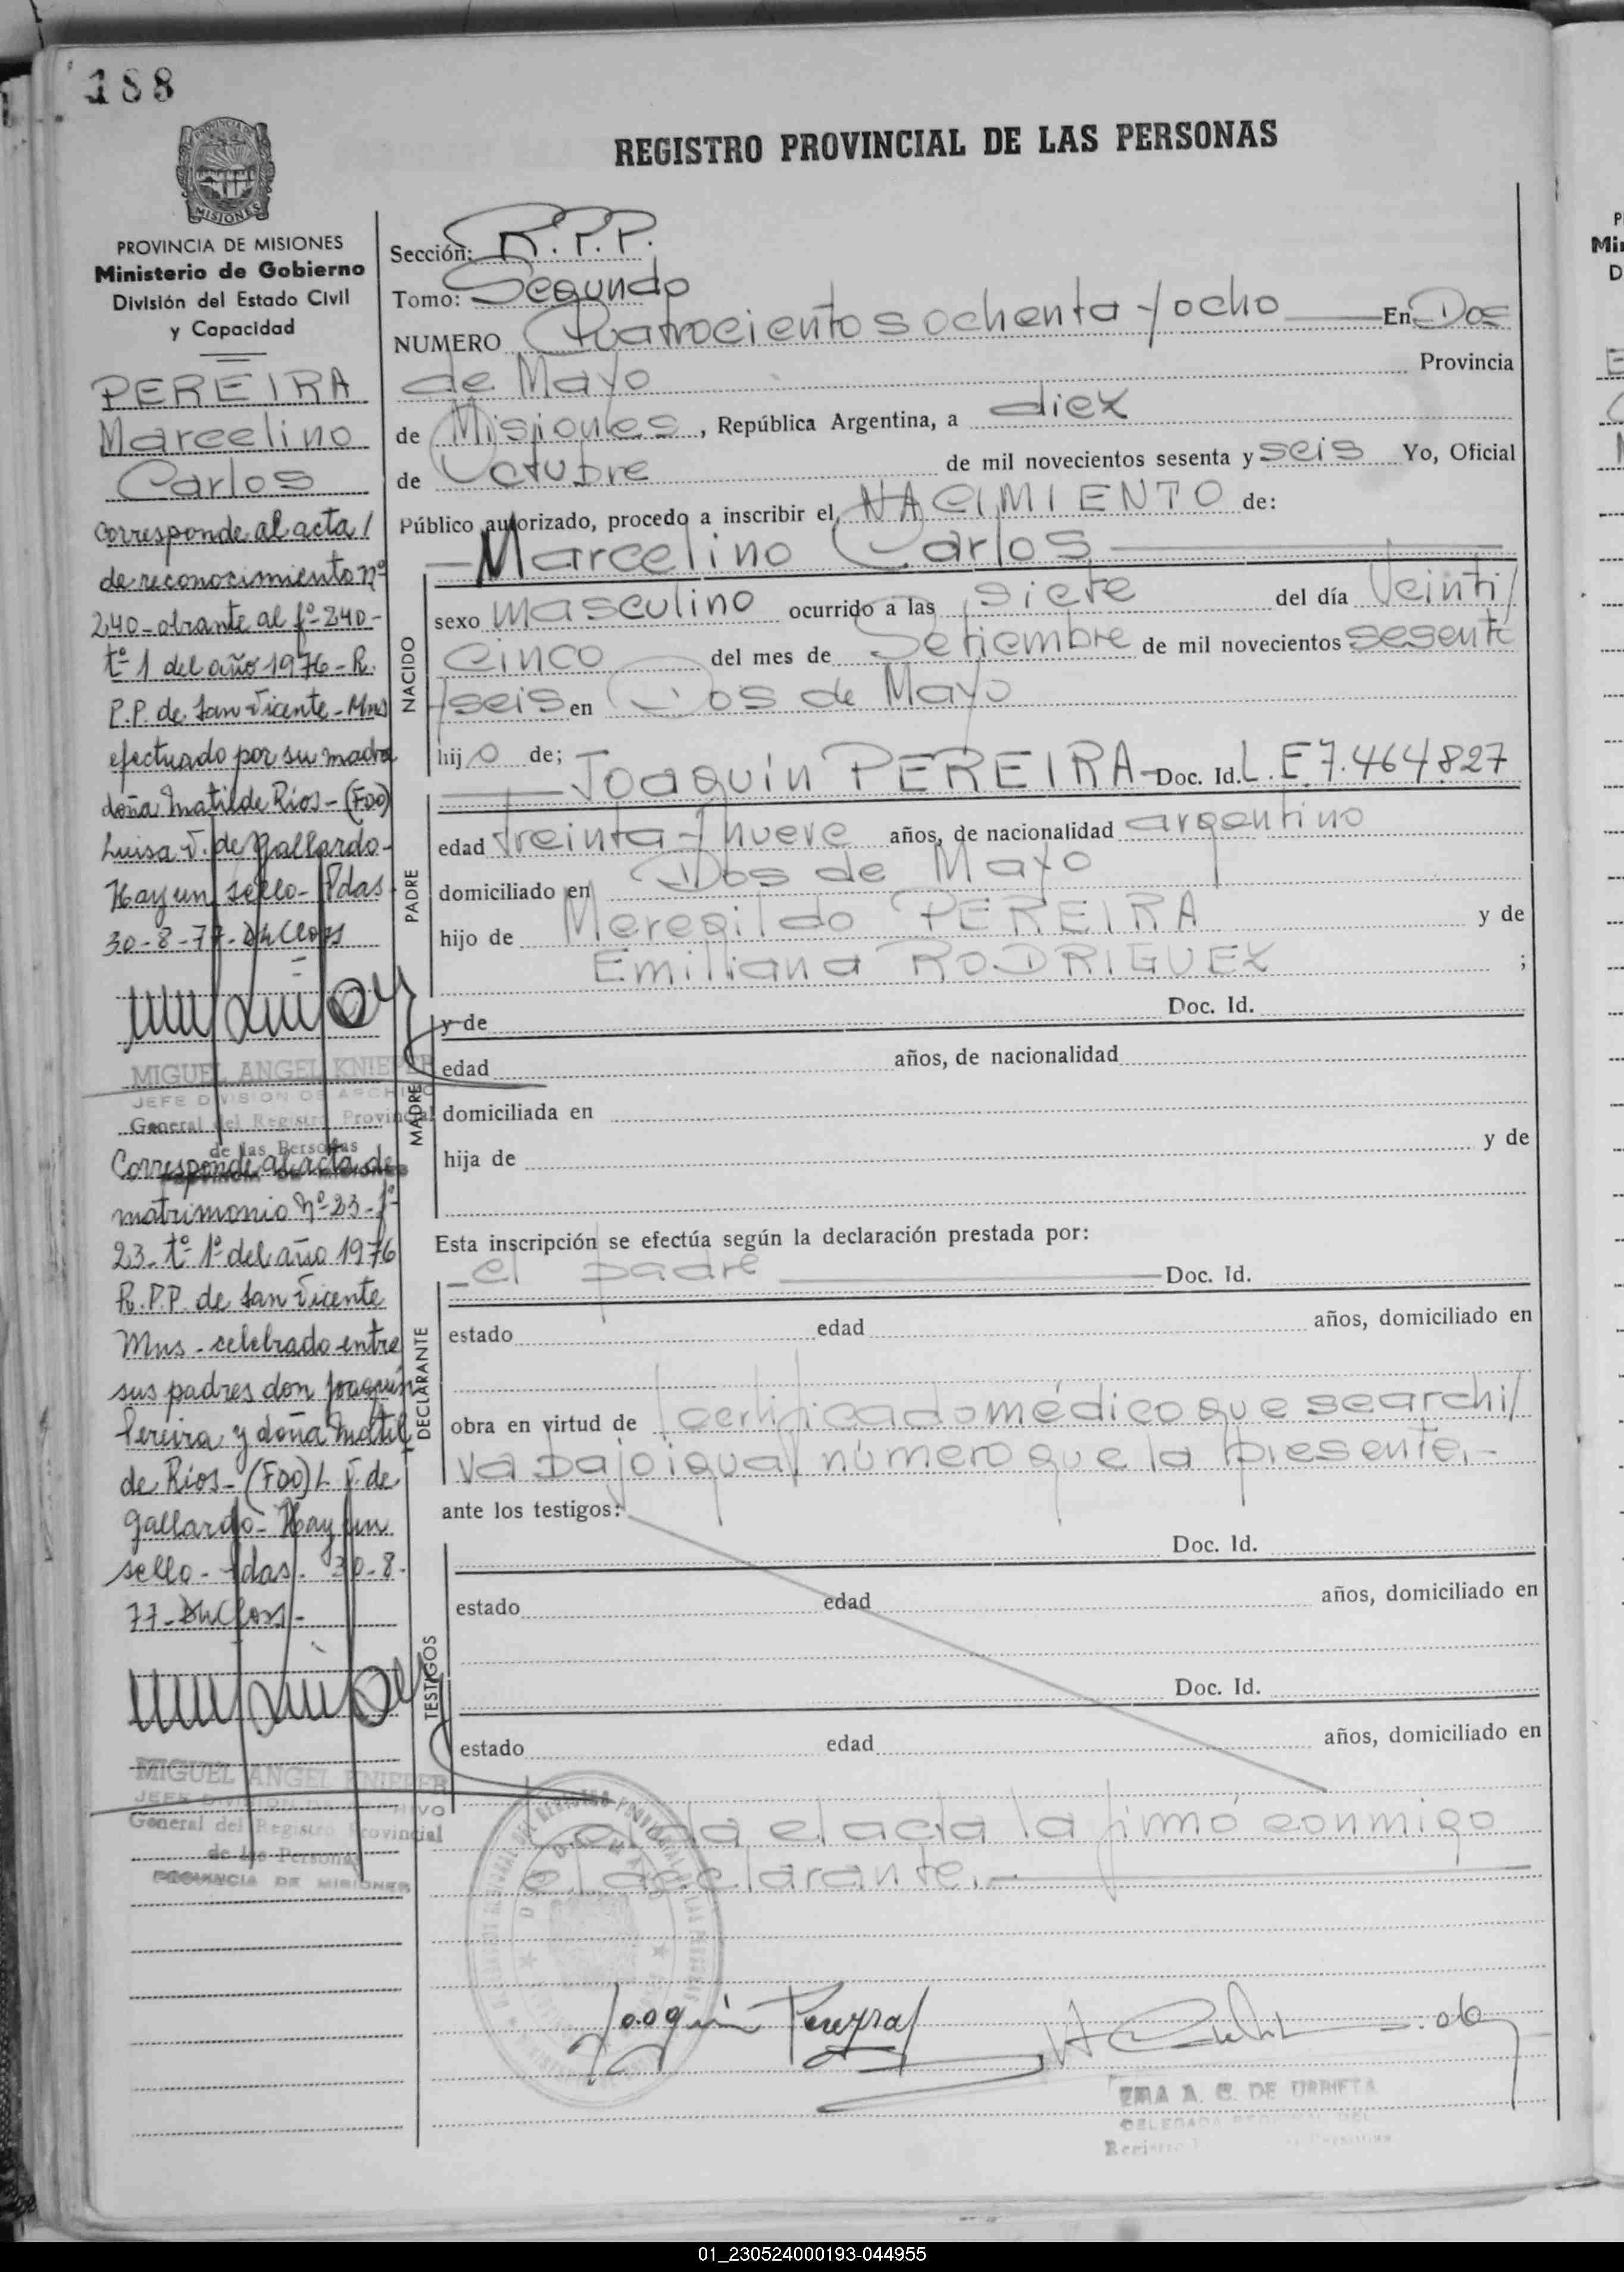 188
REGISTRO PROVINCIAL DE LAS PERSONAS
PROVINCIA DE MISIONES
Ministerio de Gobierno
División del Estado Civil
y Capacidad
PEREIRA
Marcelino
Carlos
Corresponde al acta /
de reconocimiento nº
240 - obrante al fº 240 -
tº 1 del año 1976 - R.
P.P. de San Vicente - Mns
efectuado por su madre
doña Matilde Rios - (FDO)
Luisa V. de Gallardo -
Hay un sello - Pdas
30-8-77-
MIGUEL ANGEL KNIEPER
JEFE DIVISION DE ARCHIVO
General del Registro Provincial
de las Personas
PROVINCIA DE MISIONES
Corresponde al acta de
matrimonio Nº 23 - fº
23 - tº 1º del año 1976
R.P.P. de San Vicente
Mns - celebrado entre
sus padres don Joaquin
Pereira y doña Matil
de Rios - (FDO) L V. de
Gallardo - Hay un
sello - Pdas - 30-8-
77-
MIGUEL ANGEL KNIEPER
JEFE DIVISION DE ARCHIVO
General del Registro Provincial
de las Personas
PROVINCIA DE MISIONES
Sección: R.P.P.
Tomo: Segundo
NUMERO Cuatrocientos ochenta y ocho En Dos
de Mayo Provincia
de Misiones, República Argentina, a diez
de Octubre de mil novecientos sesenta y seis Yo, Oficial
Público autorizado, procedo a inscribir el NACIMIENTO de:
Marcelino Carlos
NACIDO
sexo masculino ocurrido a las siete del día Veinti/
cinco del mes de Setiembre de mil novecientos sesenta
y seis en Dos de Mayo
hij o de; Joaquin PEREIRA - Doc. Id. L.E 7.464.827
PADRE
edad treinta y nueve años, de nacionalidad argentino
domiciliado en Dos de Mayo
hijo de Meregildo PEREIRA y de
Emiliana RODRIGUEZ ;
MADRE
y de Doc. Id.
edad años, de nacionalidad
domiciliada en
hija de y de
Esta inscripción se efectúa según la declaración prestada por:
el padre Doc. Id.
DECLARANTE
estado edad años, domiciliado en
obra en virtud de certificado médico que se archi/
va bajo igual número que la presente.-
ante los testigos:
TESTIGOS
Doc. Id.
estado edad años, domiciliado en
Doc. Id.
estado edad años, domiciliado en
Leida el acta la firmó conmigo
el declarante.-
Joaquin Pereyra
EMA A. C. DE URRIETA
DELEGADA
01_230524000193-044955